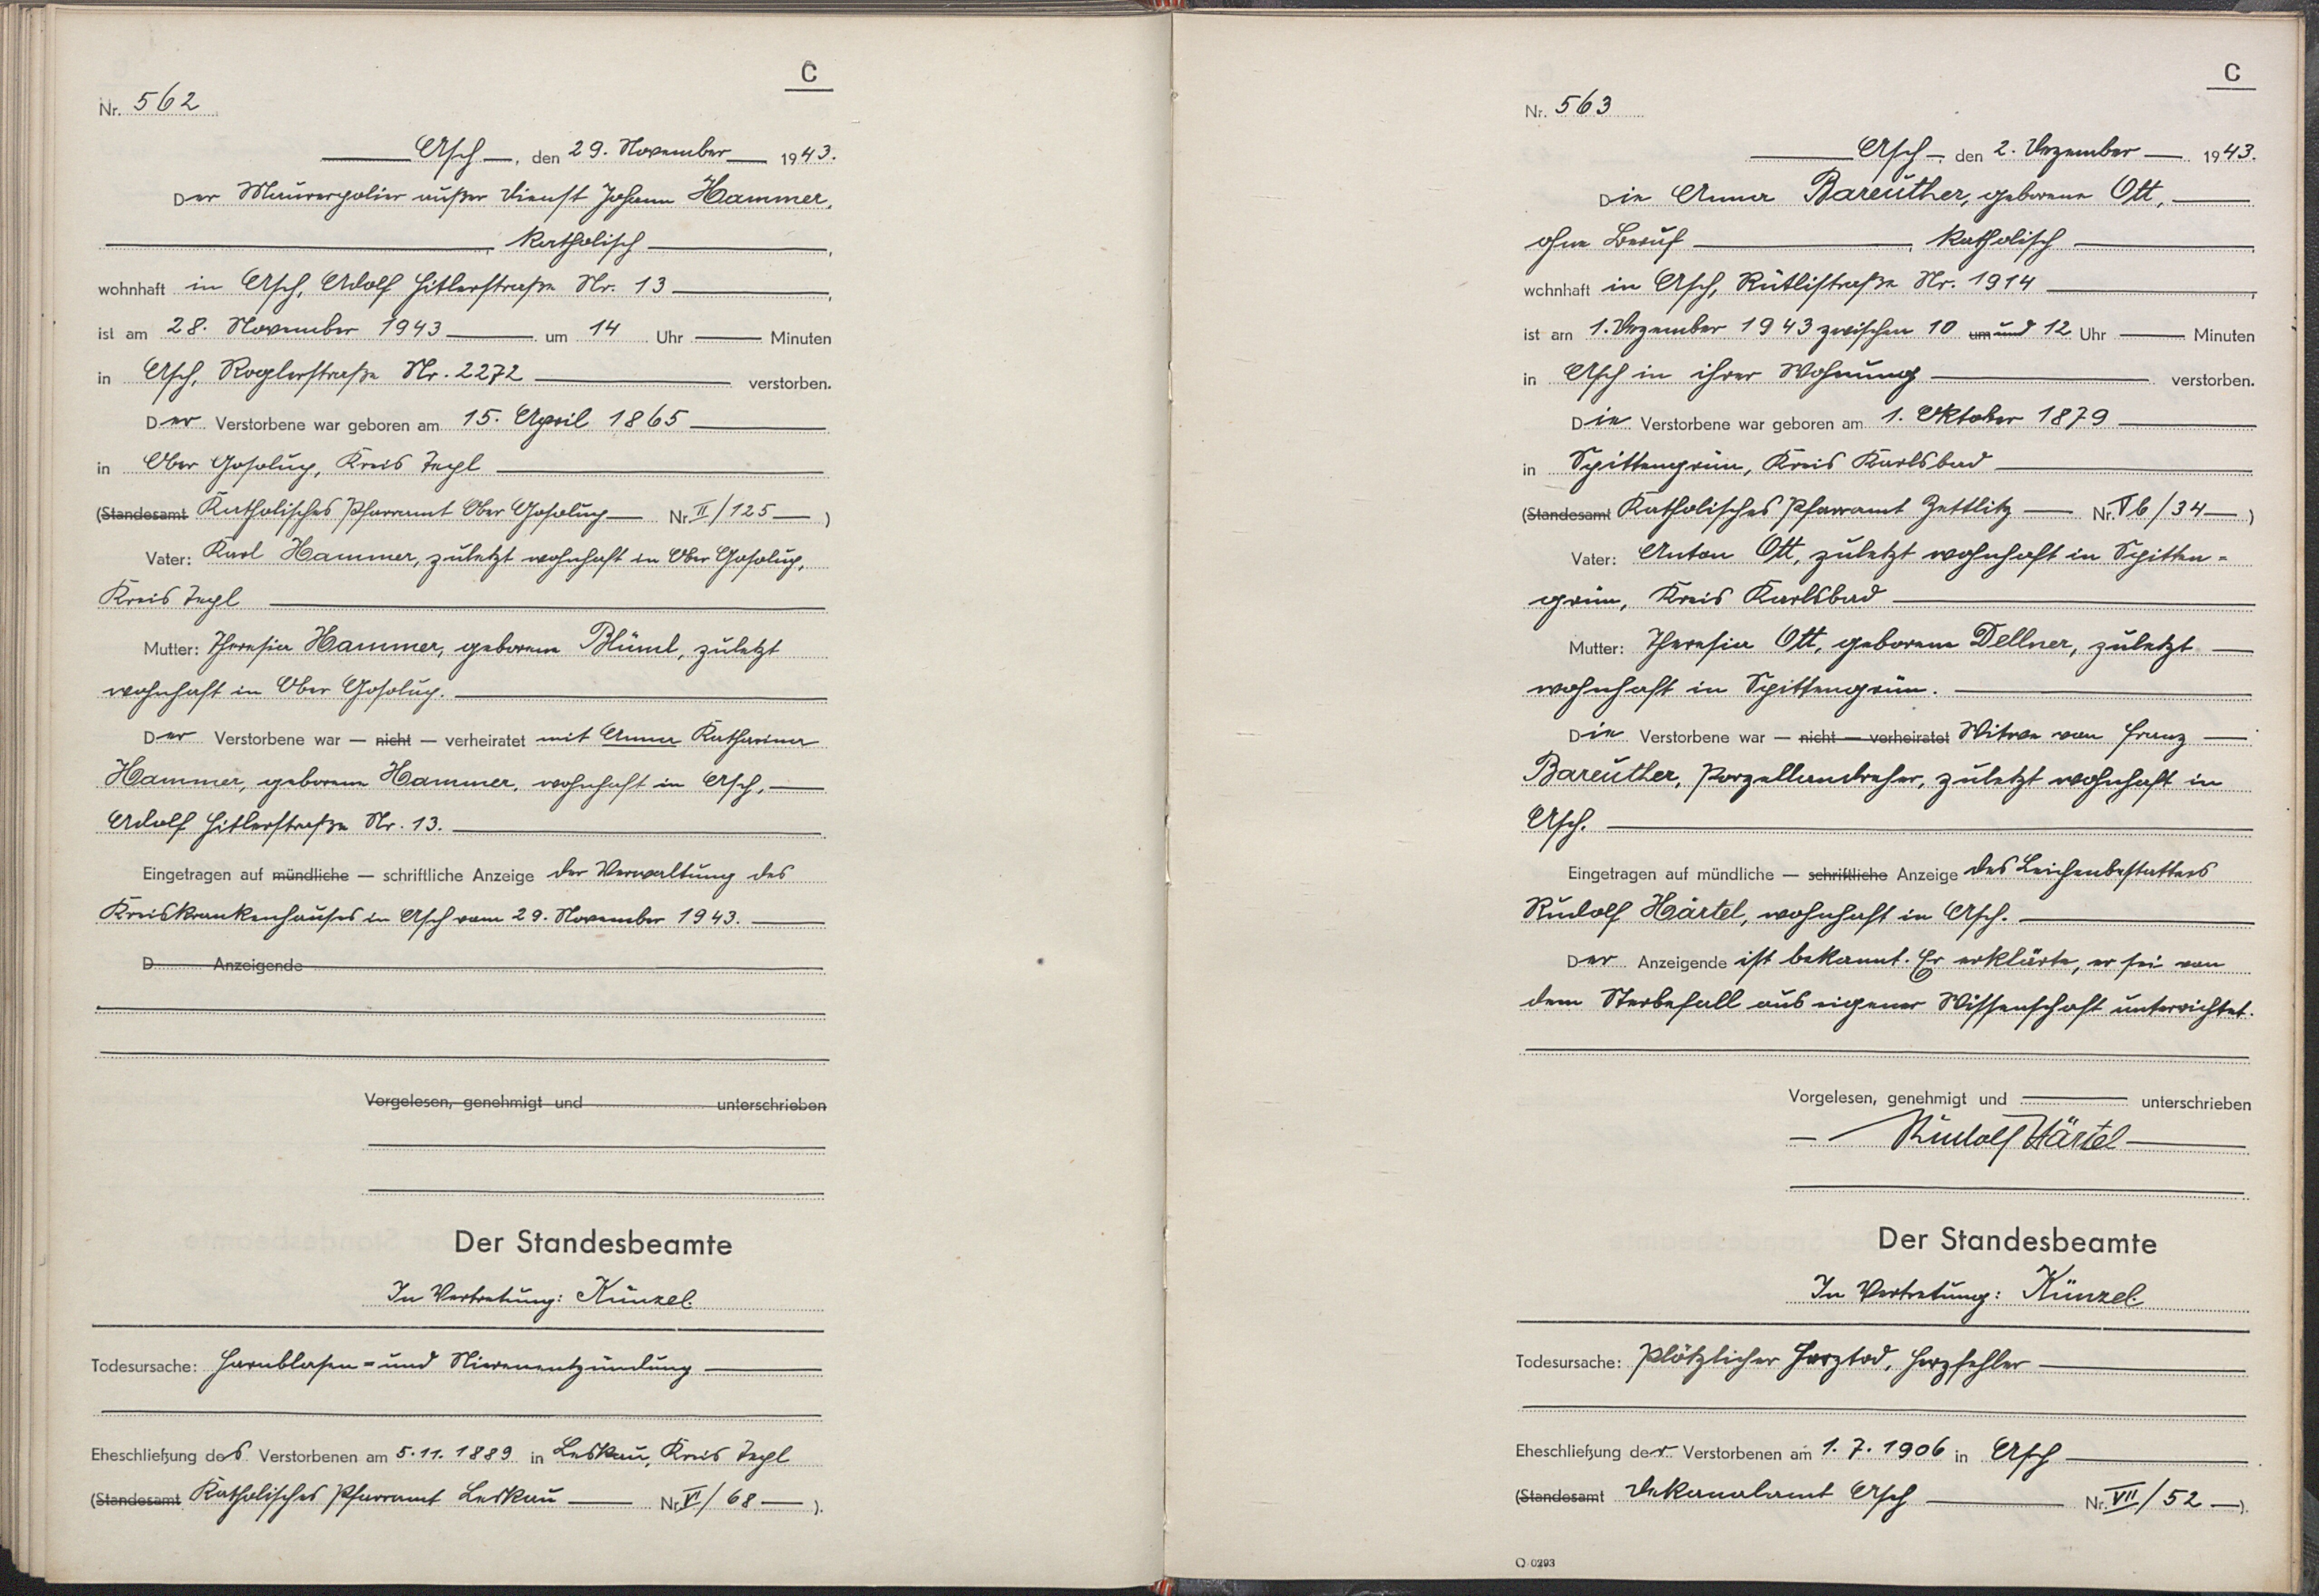 C
Nr. 562
Asch, den 29. November 1943.
Der Maurerpolier außer Dienst Johann Hammer,
katholisch,
wohnhaft in Asch, Adolf Hitlerstraße Nr. 13,
ist am 28. November 1943 um 14 Uhr Minuten
in Asch, Roglerstraße Nr. 2272 verstorben.
Der Verstorbene war geboren am 15. April 1865
in Ober Gosolup, Kreis Tepl
(Standesamt Katholisches Pfarramt Ober Gosolup Nr. II/125)
Vater: Karl Hammer, zuletzt wohnhaft in Ober Gosolup,
Kreis Tepl
Mutter: Theresia Hammer, geborene Blüml, zuletzt
wohnhaft in Ober Gosolup.
Der Verstorbene war — nicht — verheiratet mit Anna Katharina
Hammer, geborene Hammer, wohnhaft in Asch,
Adolf Hitlerstraße Nr. 13.
Eingetragen auf mündliche — schriftliche Anzeige der Verwaltung des
Kreiskrankenhauses in Asch vom 29. November 1943.
D Anzeigende
Vorgelesen, genehmigt und unterschrieben
Der Standesbeamte
In Vertretung: Künzel.
Todesursache: Harnblasen- und Nierenentzündung
Eheschließung des Verstorbenen am 5.11.1889 in Leskau, Kreis Tepl
(Standesamt Katholisches Pfarramt Leskau Nr. VI/68).
C
Nr. 563
Asch, den 2. Dezember 1943.
Die Anna Bareuther, geborene Ott,
ohne Beruf, katholisch,
wohnhaft in Asch, Rütlistraße Nr. 1914,
ist am 1. Dezember 1943 zwischen 10 um und 12 Uhr Minuten
in Asch in ihrer Wohnung verstorben.
Die Verstorbene war geboren am 1. Oktober 1879
in Spittengrün, Kreis Karlsbad
(Standesamt Katholisches Pfarramt Zettlitz Nr. Vb/34)
Vater: Anton Ott, zuletzt wohnhaft in Spitten-
grün, Kreis Karlsbad
Mutter: Theresia Ott, geborene Dellner, zuletzt
wohnhaft in Spittengrün.
Die Verstorbene war — nicht — verheiratet Witwe von Franz
Bareuther, Porzellandreher, zuletzt wohnhaft in
Asch.
Eingetragen auf mündliche — schriftliche Anzeige des Leichenbestatters
Rudolf Härtel, wohnhaft in Asch.
Der Anzeigende ist bekannt. Er erklärte, er sei von
dem Sterbefall aus eigener Wissenschaft unterrichtet.
Vorgelesen, genehmigt und unterschrieben
Rudolf Härtel
Der Standesbeamte
In Vertretung: Künzel
Todesursache: Plötzlicher Herztod, Herzfehler
Eheschließung der Verstorbenen am 1.7.1906 in Asch
(Standesamt Dekanalamt Asch Nr. VII/52).
Q 0293